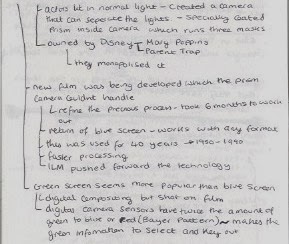 actors lit in normal light - Created a camera
that can seperate the lights - specially coated
prism inside camera which runs three masks
owned by Disney Mary Poppins
Parent Trap
they monopolised it
new film was being developed which the prism
camera couldnt handle
refine the previous process - took 6 months to work
out
return of blue screen - works with any format
this was used for 40 years → 1950-1990
faster processing
ILM pushed forward the technology
Green screen seems more popular then blue screen
digital compositing but shot on film
digital camera sensors have twice the amount of
green to blue or red (Bayer Pattern) → makes the
green infomation to select and key out